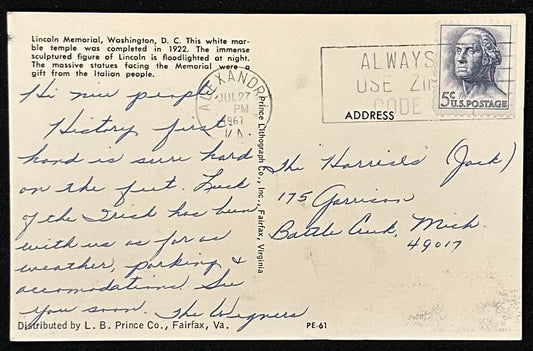 Lincoln Memorial, Washington, D. C. This white mar-
ble temple was completed in 1922. The immense
sculptured figure of Lincoln is floodlighted at night.
The massive statues facing the Memorial were a
gift from the Italian people.
ALEXANDRIA
JUL 27
PM
1967
VA.
ALWAYS
USE ZIP
CODE
5c U.S. POSTAGE
ADDRESS
Hi nice people
History first
hand is sure hard
on the feet. Luck
of the Irish has been
with us as far as
weather, parking &
accomodations. See
you soon. The Wegners
Prince Lithograph Co., Inc., Fairfax, Virginia
The Harrises (Jack)
175 Garrison
Battle Creek, Mich.
49017
Distributed by L. B. Prince Co., Fairfax, Va.
PE-61